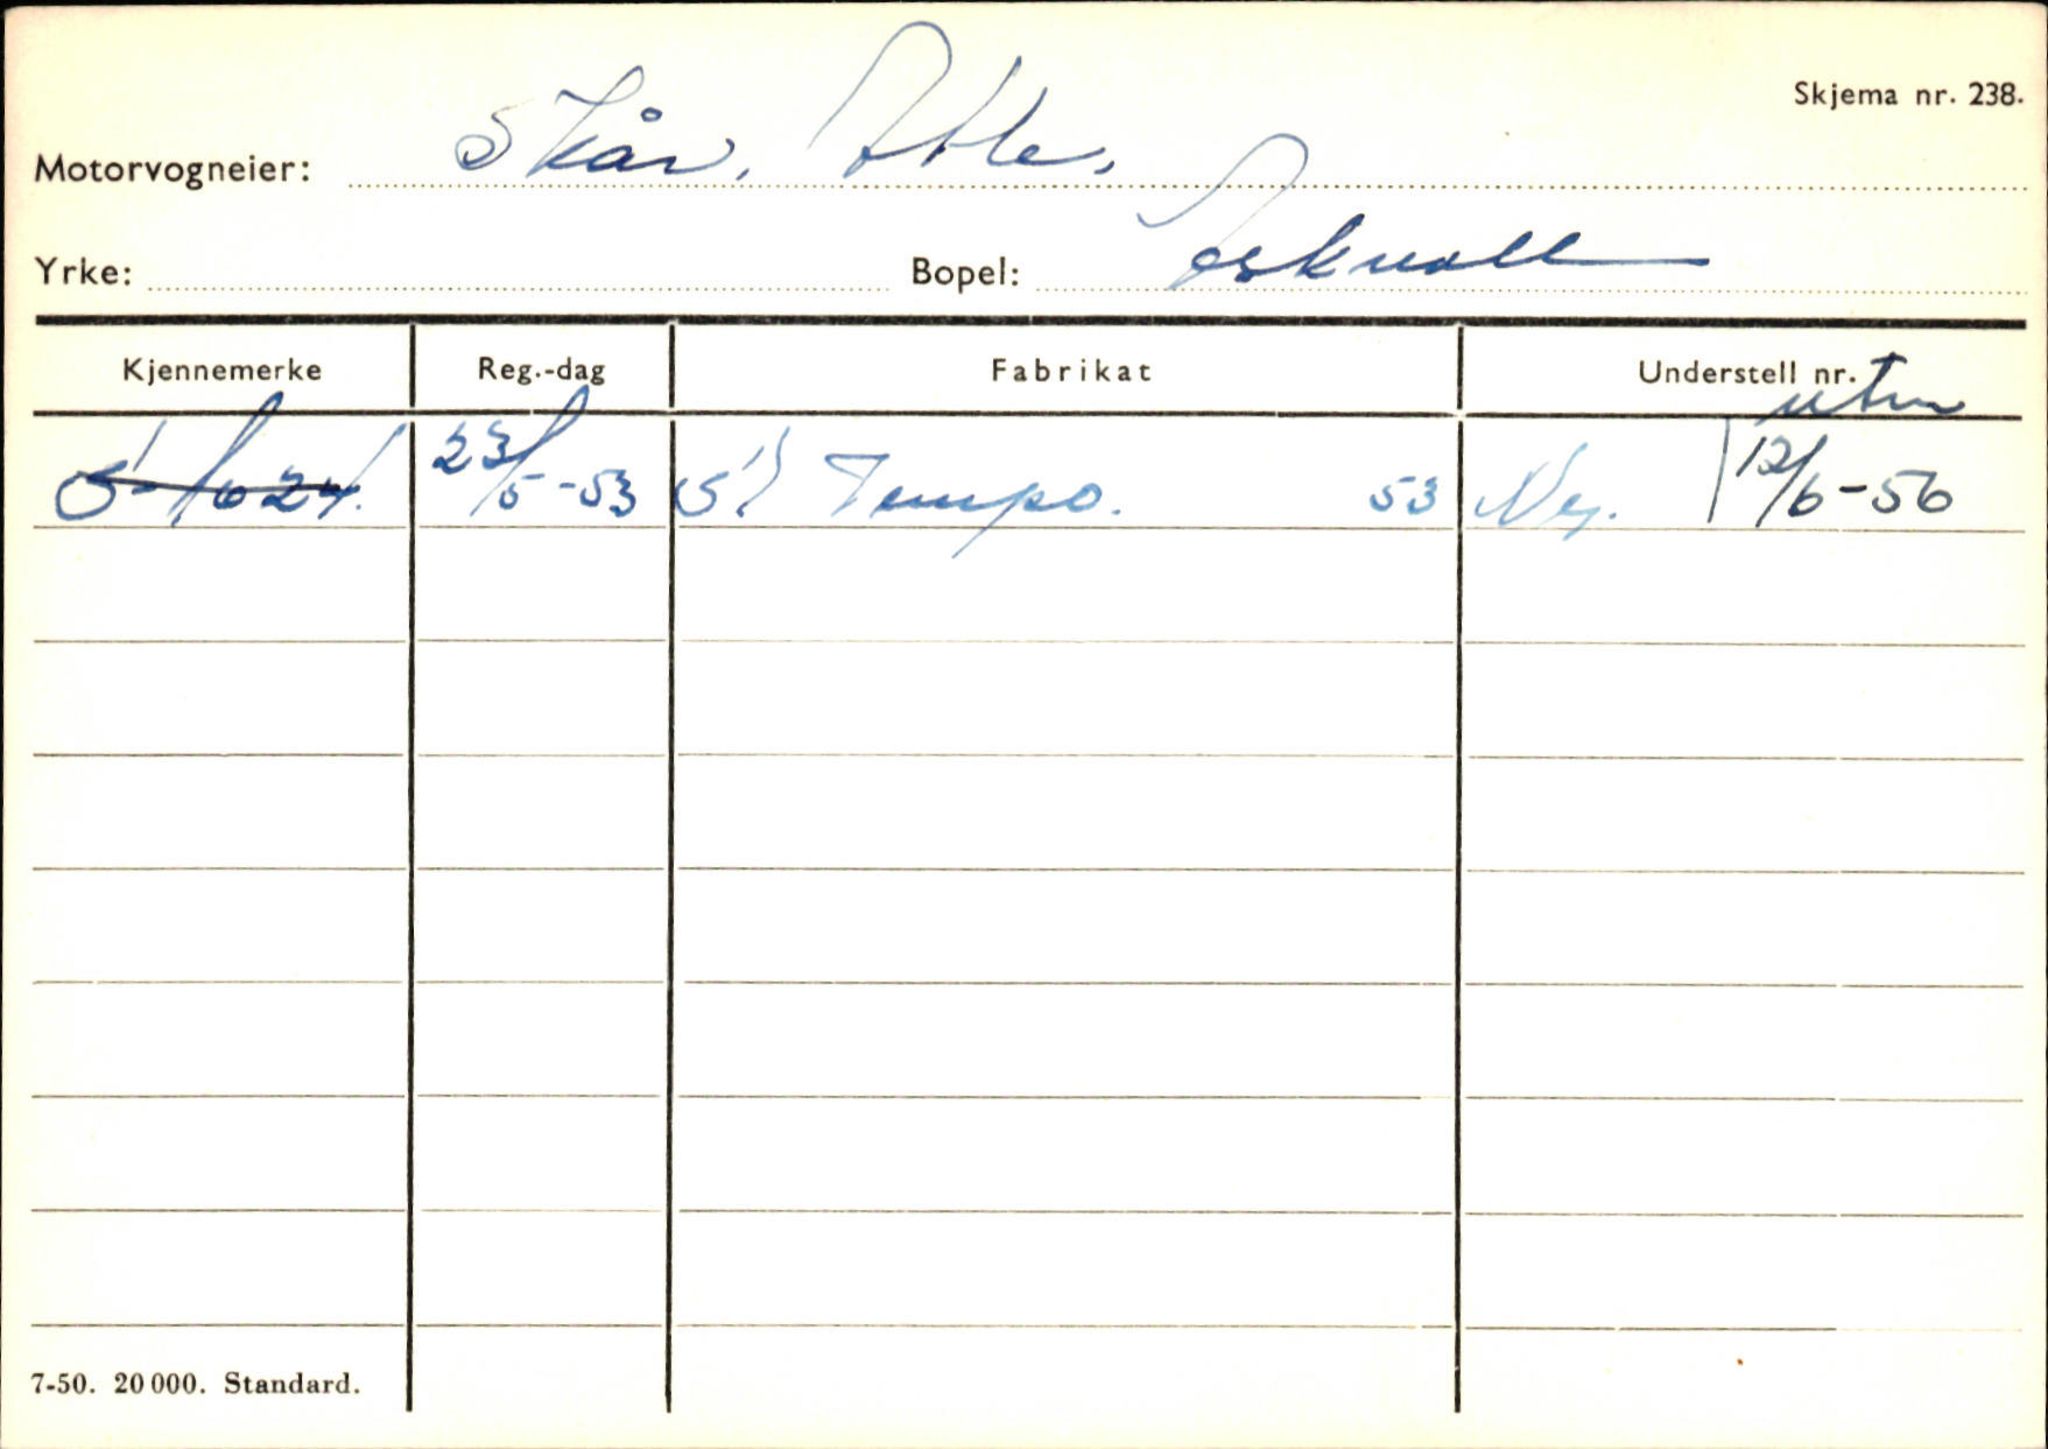 Skjema nr. 238.
Motorvogneier: Skår, Atle.
Yrke: Bopel: Askvoll
Kjennemerke Reg.-dag Fabrikat Understell nr.
23/5-53 Tempo. 53 Ny. 12/6-56
7-50. 20 000. Standard.